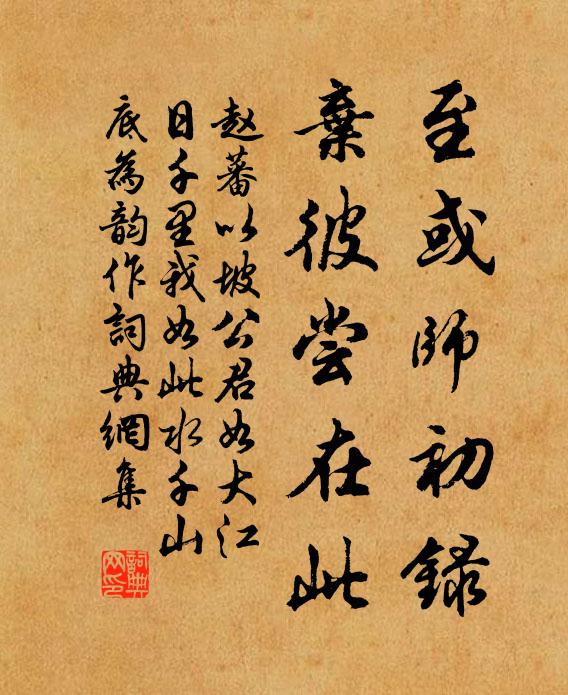 至或師初錄
棄彼嘗在此
趙蕃以坡公君如大江
日千里我如此水千山
底為韵作詞典網集
詞典网印